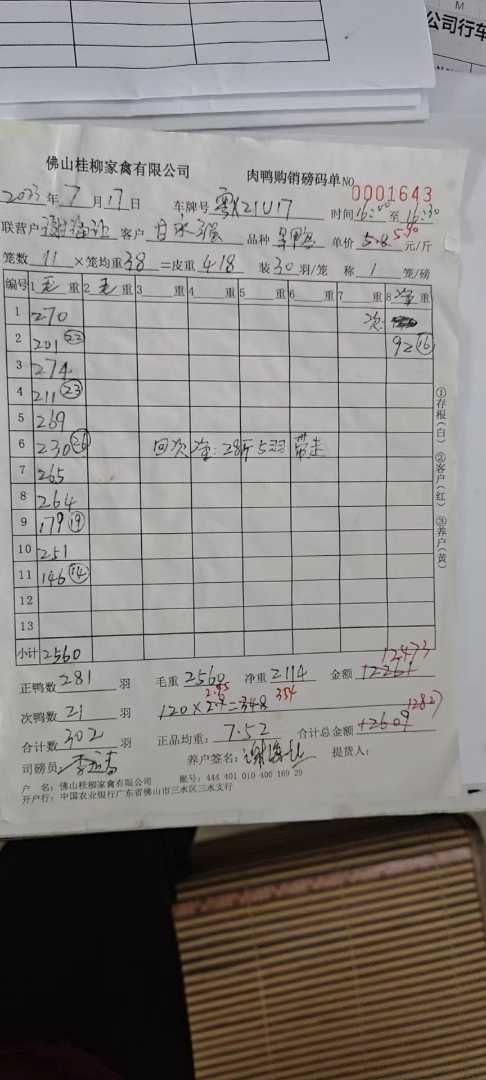 M
公司行车
佛山桂柳家禽有限公司 肉鸭购销磅码单 NO 0001643
2023年7月17日 车牌号 粤X21U17 时间16:00至16:30
联营户 客户 品种 单价 5.8 5.90 元/斤
笼数 11 ×笼均重 38 =皮重 418 装30羽/笼 称 1 笼/磅
编号 1 毛 重 2 毛 重 3 重 4 重 5 重 6 重 7 重 8 净 重
1 270 次
2 201 (23) 92 (16)
3 274
4 211 (23)
5 269
6 230 回次净:28斤5羽 带走
7 265
8 264
9 179 (19)
10 251
11 146 (14)
12
13
小计 2560
①存根(白) ②客户(红) ③养户(黄)
12473
正鸭数 281 羽 毛重 2560 净重 2114 金额 12261
2.95 354 12827
次鸭数 21 羽 120×2.9=348
合计数 302 羽 正品均重: 7.52 合计总金额 12609
司磅员: 养户签名: 提货人:
户 名: 佛山桂柳家禽有限公司 账号: 444 401 010 400 169 29
开户行: 中国农业银行广东省佛山市三水区三水支行